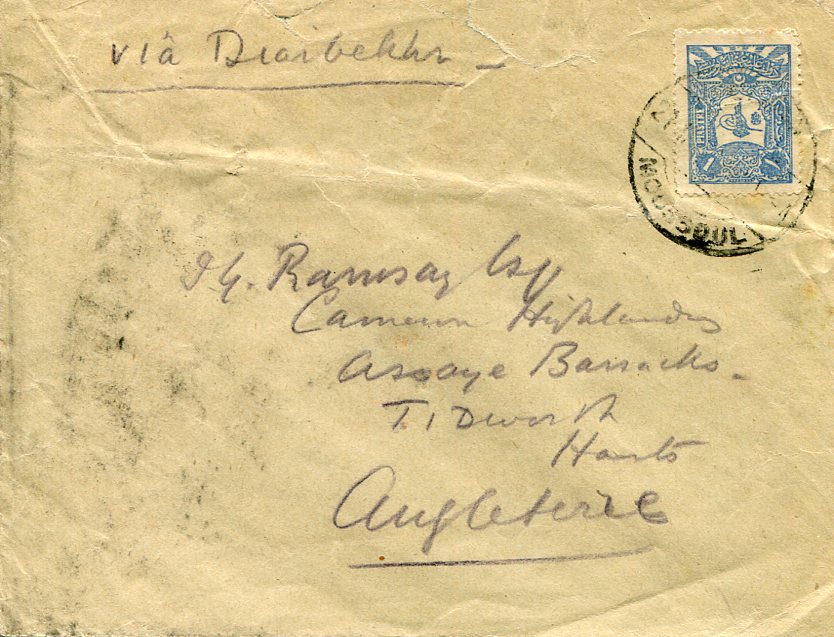 viâ Diarbekhr
21
MOUSSOUL
1 1
J.G. Ramsay Esq
Cameron Highlanders
Assaye Barracks.
TIDworth
Hants
Angleterre